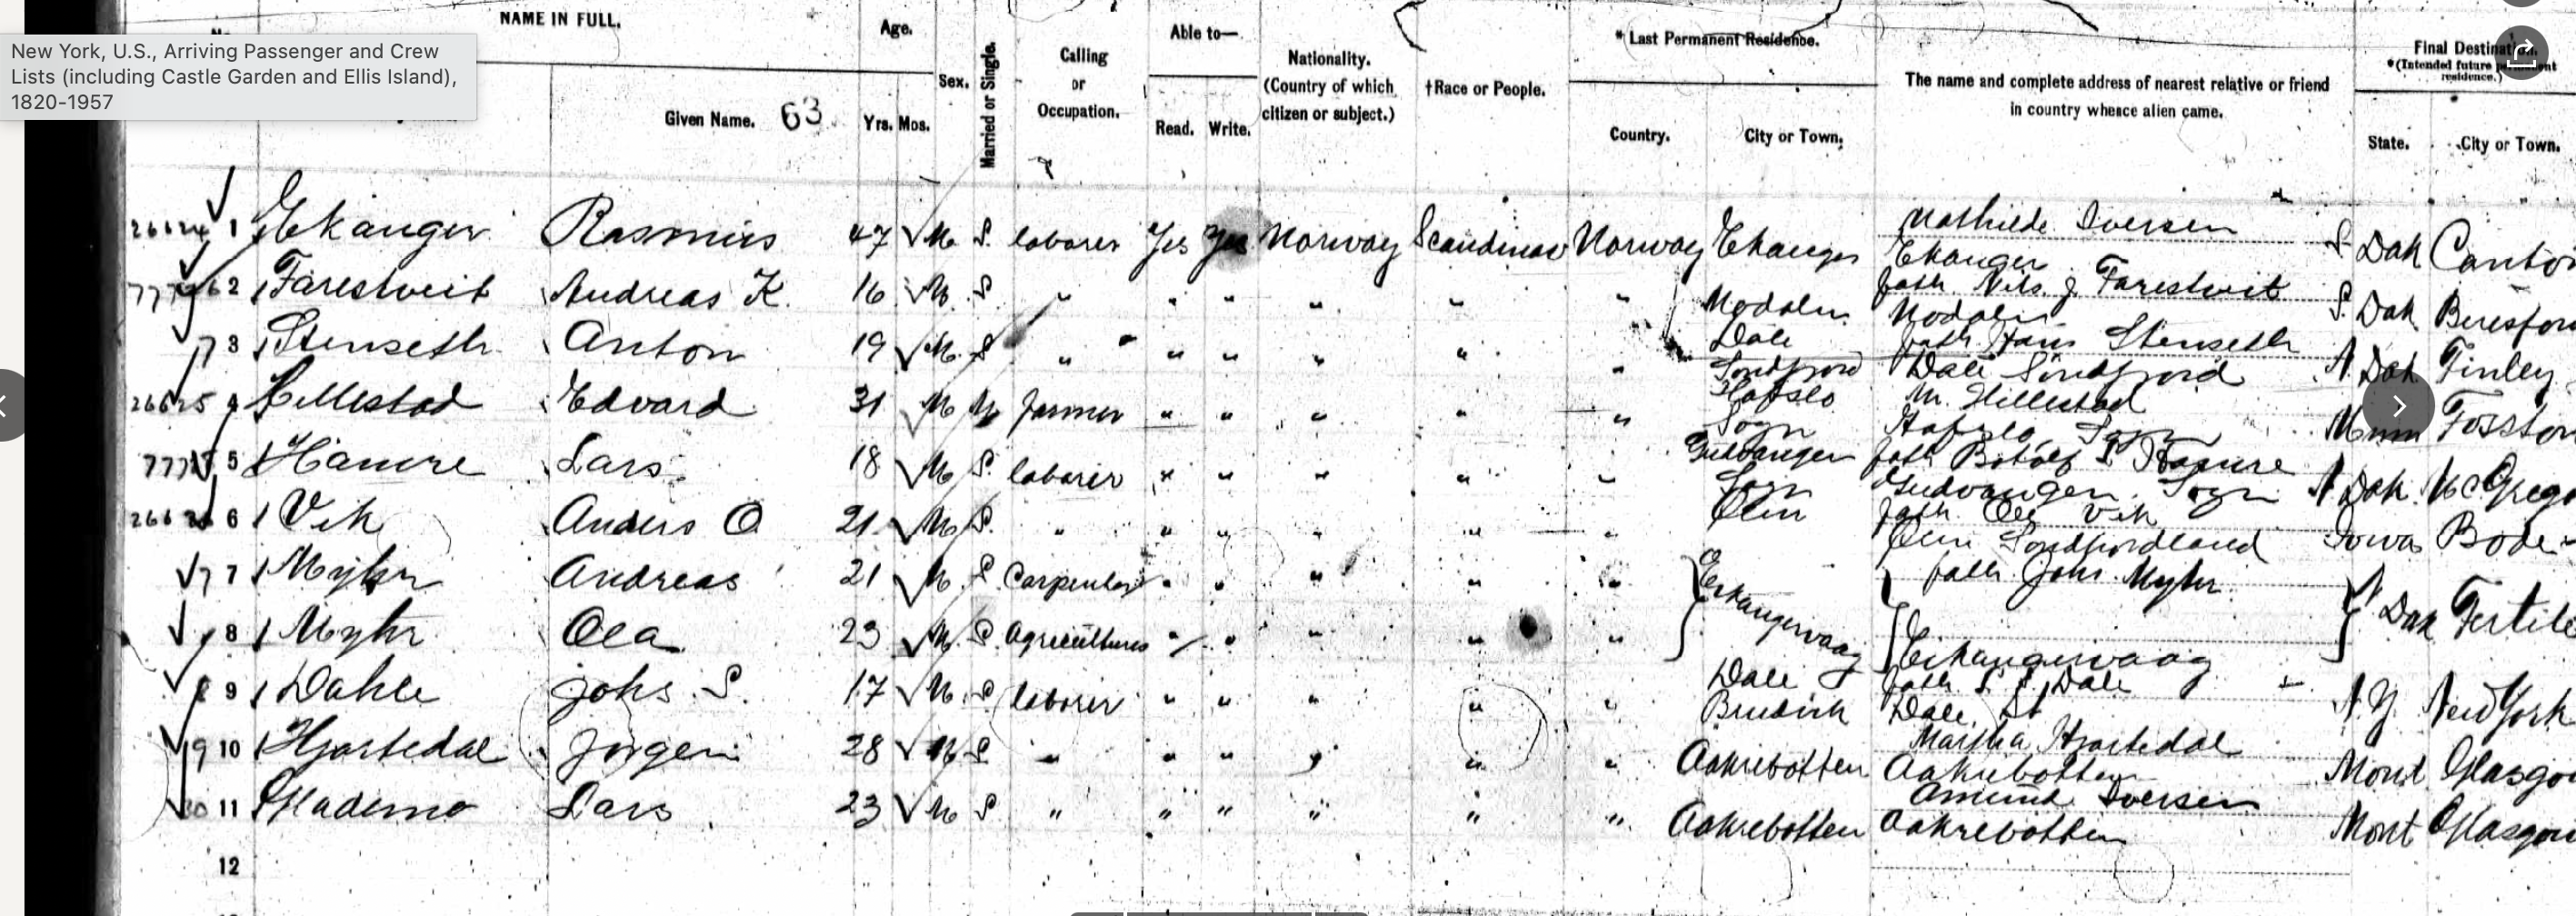 NAME IN FULL.
Age.
Sex.
Married or Single.
Calling or Occupation.
Able to—
Read. Write.
Nationality. (Country of which citizen or subject.)
†Race or People.
* Last Permanent Residence.
Country. City or Town.
The name and complete address of nearest relative or friend
in country whence alien came.
Final Destination.
*(Intended future permanent residence.)
State. City or Town.
New York, U.S., Arriving Passenger and Crew
Lists (including Castle Garden and Ellis Island),
1820-1957
Given Name. 63 Yrs. Mos.
1 Ekanger Rasmus 47 M S. laborer Yes Yes Norway Scandinav Norway Ekanger Mathilde Iversen Ekanger S. Dak Canton
2 Farestveit Andreas K. 16 M S " " " " " " Modalen fath Nils J. Farestveit Modalen S. Dak Beresfor
3 Stenseth Anton 19 M S " " " " " " Dale Sondfjord fath Hans Stenseth Dale Sondfjord N. Dak Finley
26625 4 Hillestad Edvard 31 M M farmer " " " " " Hafslo Sogn M. Hillestad Hafslo, Sogn Minn Fosston
5 Hamre Lars 18 M S. laborer " " " " " Gudvangen Sogn fath Botolf Hamre Gudvangen, Sogn N Dak McGrego
6 Vik Anders O 21 M S. " " " " " " fath Ole Vik Iowa Bode
7 Myhr Andreas 21 M S Carpenter " " " " " fath Johs Myhr
8 Myhr Ola 23 M S. " " " " " Dak Fertile
9 Dahle Johs. S. 17 M S laborer " " " " " Dale fath Dale Dale, N.Y. New York
10 Hjartedal Jorgen 28 M S " " " " " " Aakrebotten Martha Hjartedal Aakrebotten Mont Glasgo
11 Lars 23 M S " " " " " " Aakrebotten Amund Iversen Aakrebotten Mont Glasgow
12